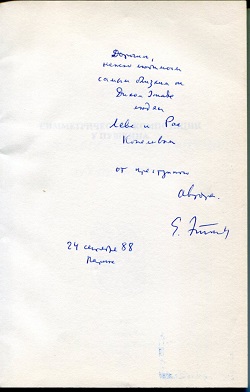 Дорогим,
нежно любимым
самым близким
людям
Леве и Рае
Копелевым
от преданного
автора.
24 сентября 88
Париж